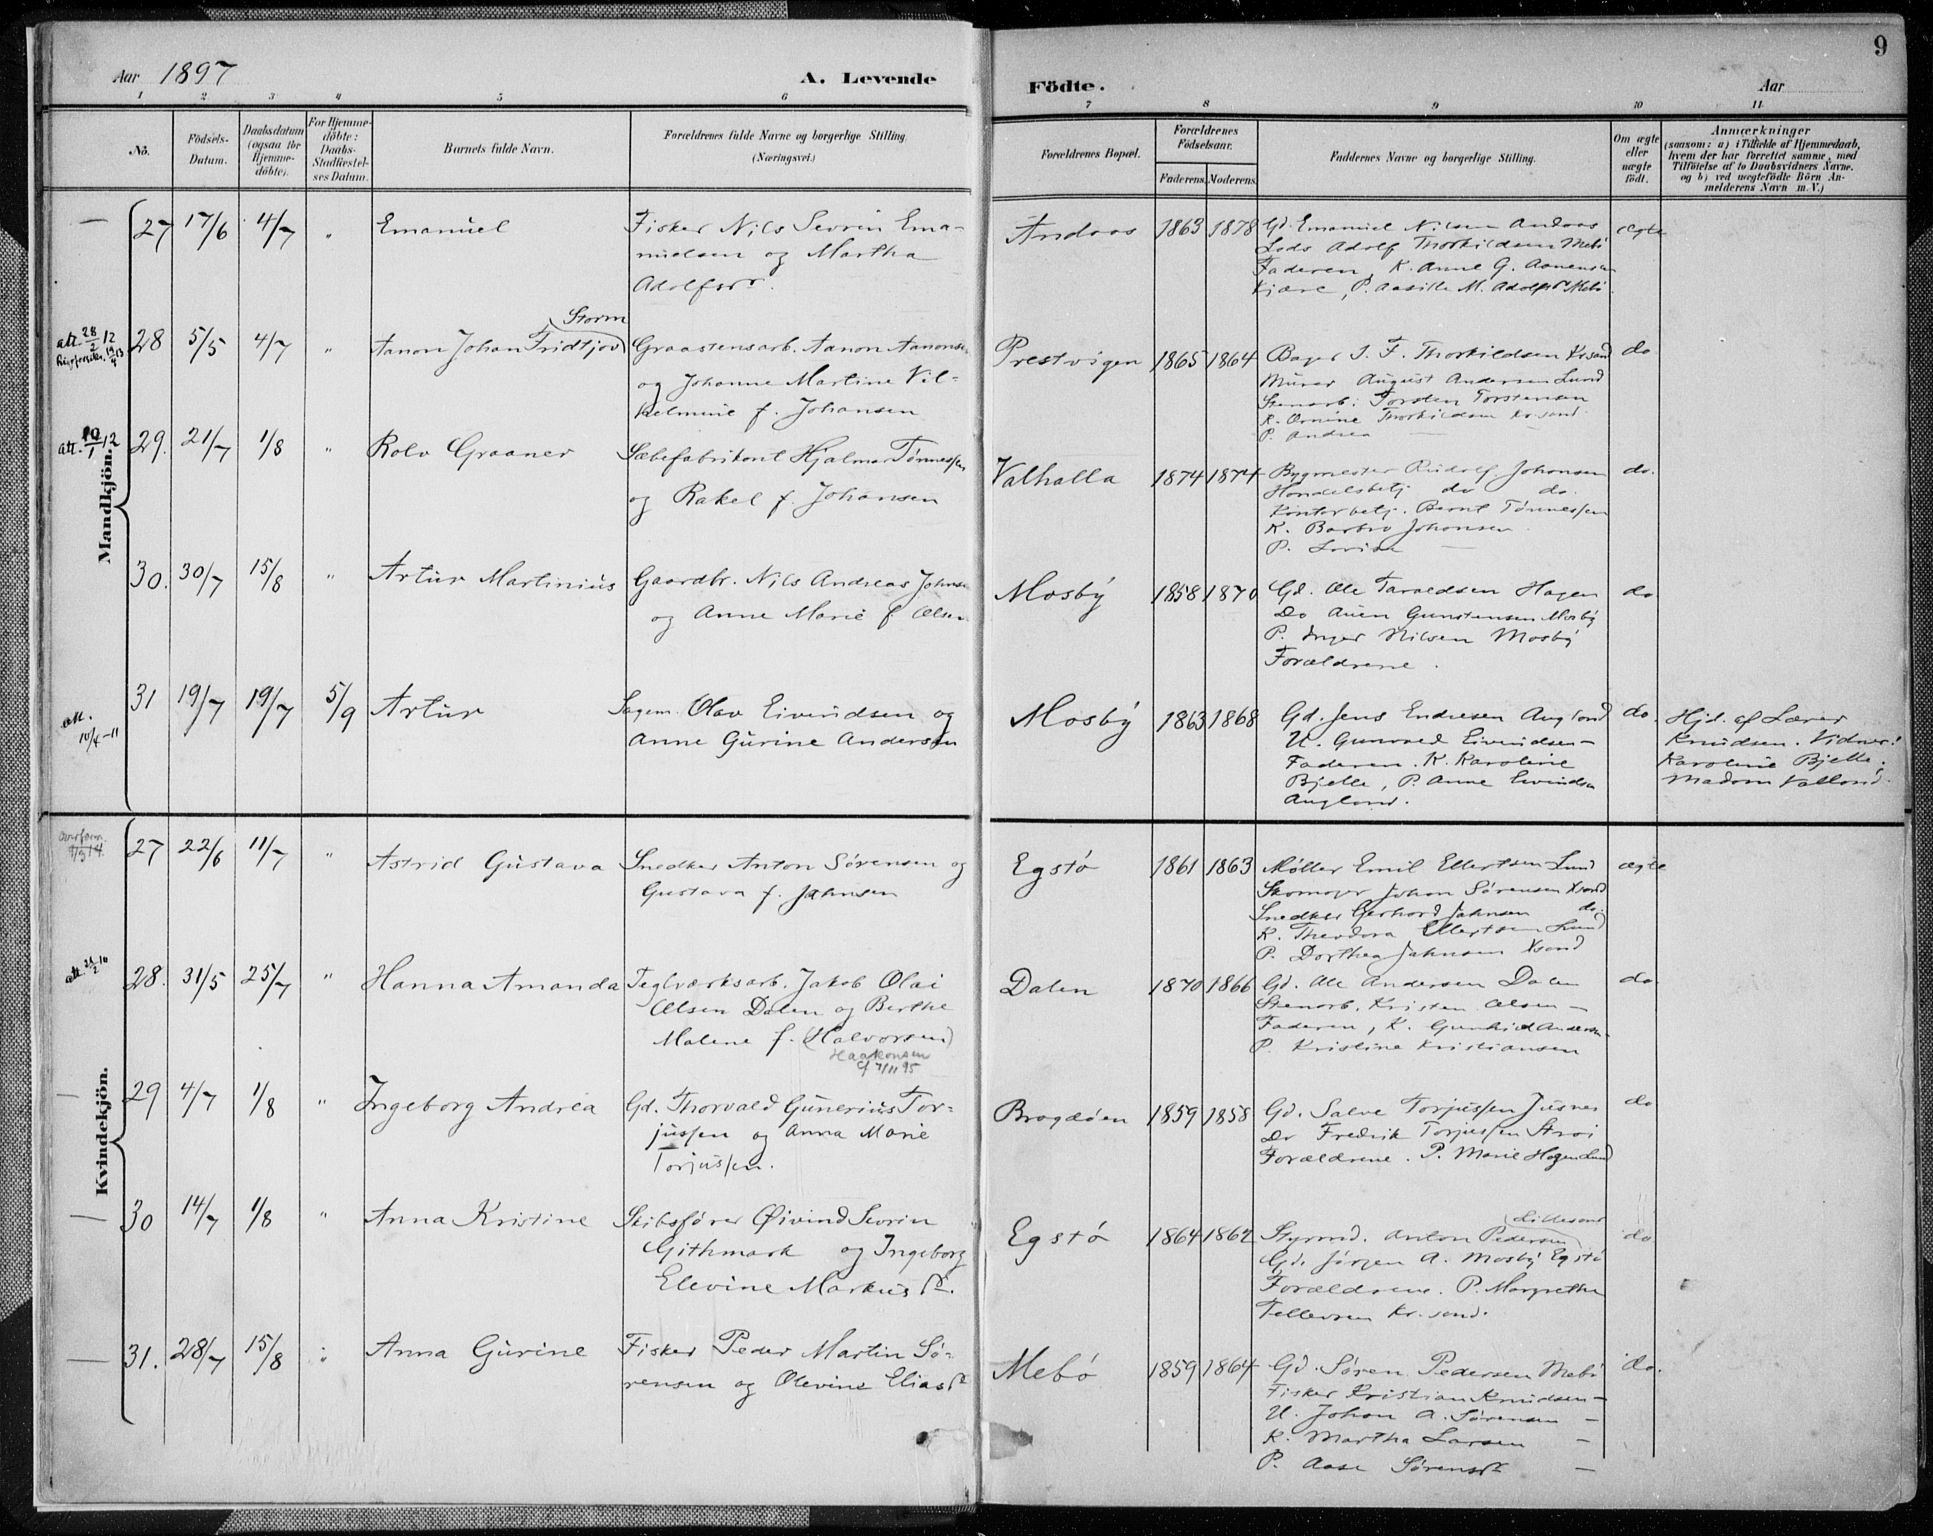 Aar 1897
A. Levende
Födte.
Aar
9
1 2 3 4 5 6 7 8 9 10 11
Nô.
Födsels-
Datum.
Daabsdatum
(ogsaa for
Hjemme-
döbte).
For Hjemme-
döbte:
Daabs-
Stadfæstel-
ses Datum.
Barnets fulde Navn.
Forældrenes fulde Navne og borgerlige Stilling.
(Næringsvei.)
Forældrenes Bopæl.
Forældrenes
Födselsaar.
Faderens.
Moderens.
Faddernes Navne og borgerlige Stilling.
Om ægte
eller
uægte
födt.
Anmærkninger
(saasom: a) i Tilfælde af Hjemmedaab,
hvem der har forrettet samme, med
Tilföielse af to Daabsvidners Navne.
og b) ved uægtefödte Börn An-
melderens Navn m. V.)
Mandkjön.
— 27 17/6 4/7 " Emanuel
Fisker Nils Sevrin Ema-
nuelsen og Martha
Adolfsdr.
Andaas 1863 1878
Gd. Emanuel Nilsen Andaas
Lods Adolf Thorkildsen Mebö
Faderen, K. Anne G. Aanensen
Kjære, P. Aasille M. Adolfsdr Mebö
ægte
att. 28/2 12
28 5/5 4/7 " Aanon Johan Fridtjov
Storm
Graastensarb. Aanon Aanonsen
og Johanne Martine Vil-
helmine f. Johansen
Prestvigen 1865 1864
Bager J. F. Thorkildsen Krsand
Murer August Andersen Lund
Stenarb. Torsten Torstensen
K. Thorkildsen Kr.sand.
P. Andrea —
do
att. 10/1 12
29. 21/7 1/8 " Rolv Graaner
Sæbefabrikant Hjalmar Tønnessen
og Rakel f. Johansen
Valhalla 1874 1874
Bygmester Rudolf Johansen
Handelsbetj do do.
Kontorbetj. Bernt Tønnessen
K. Barbro Johansen
P. Lovise —
do.
30. 30/7 15/8 " Artur Martinius
Gaardbr. Nils Andreas Johnsen
og Anne Marie f Olsen
Mosby 1858 1870
Gd. Ole Taraldsen Hagen
Do Auen Gunstensen Mosby
P. Inger Nilsen Mosby
Forældrene.
do
att. 10/4-11
31 19/7 19/7 5/9 Artur
Sagem. Olav Eivindsen og
Anne Gurine Andersen
Mosby 1863 1868
Gd. Jens Endresen Augland
U. Gunvald Eivindsen —
Faderen. K. Karoline
Bjelle, P. Anne Eivindsen
Augland.
do.
Hjd. af Lærer
Knudsen. Vidner:
Karoline Bjelle,
Madam Valland.
Kvindekjön.
27 22/6 11/7 " Astrid Gustava
Snedker Anton Sørensen og
Gustava f. Jahnsen
Egstø 1861 1863
Møller Emil Ellertsen Lund
Skomager Johan Sørensen Xsand
Snedker Gerhard Jahnsen do.
K. Theodora Ellertsen Lund
P. Dorthea Jahnsen Xsand
ægte
28. 31/5 25/7 " Hanna Amanda
Teglværksarb. Jakob Olai
Olsen Dalen og Berthe
Malene f. (Halvorsen)
Haakonsen
cf 7/11 95
Dalen 1870 1866
Gd. Ole Andersen Dalen
Stenarb. Kristen Olsen —
Faderen, K. Gunhild Andersen —
P. Kristine Kristiansen
do
— 29 4/7 1/8 " Ingeborg Andrea
Gd. Thorvald Gunerius Tor-
jussen og Anna Marie
Torjussen.
Bragdøen 1859 1858
Gd. Salve Torjussen Jusnes
Do Fredrik Torjussen Stroi
Forældrene. P. Marie Hagen Lund
do
— 30 14/7 1/8 " Anna Kristine
Skibsfører Øivind Sevrin
Githmark og Ingeborg
Elevine Markusdr.
Egstø 1864 1862
Styrmd. Anton Pedersen
Lillesand
Gd. Jørgen A. Mosby Egstø
Forældrene. P. Margrethe
Tellevsen Kr.sand.
do
— 31. 28/7 15/8 " Anna Gurine
Fisker Peder Martin Sø-
rensen og Olevine Eliasdr
Mebø 1859 1864
Gd. Søren Pedersen Mebö
Fisker Kristian Knudsen —
U. Johan A. Sørensen —
K. Martha Larsen —
P. Aase Sørensdr —
do.